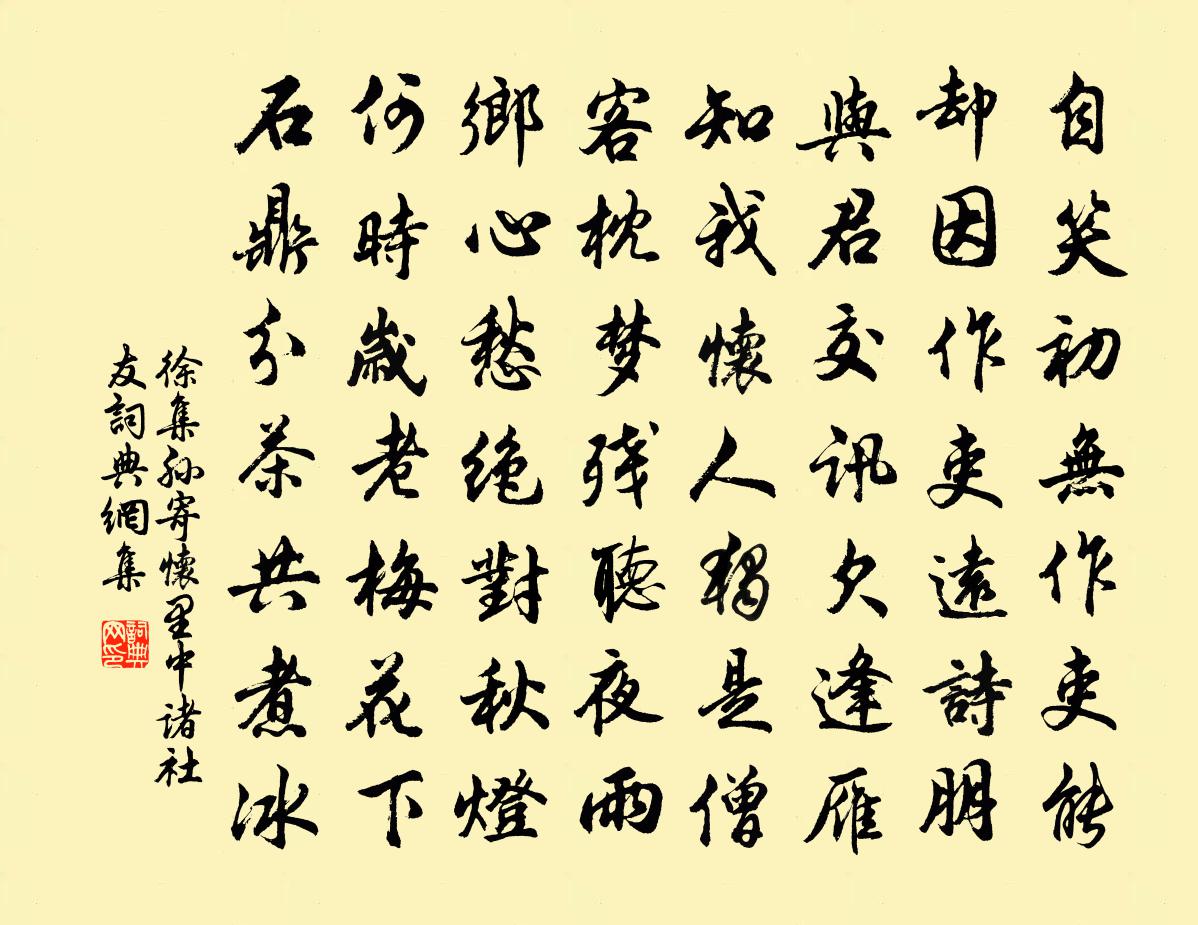 自笑初無作吏能
却因作吏遠詩朋
與君交訊欠逢雁
知我懷人獨是僧
客枕梦残聽夜雨
鄉心愁绝對秋燈
何時歲老梅花下
石鼎分茶共煮冰
徐集孙寄懷里中诸社
友詞典網集
詞典
网印